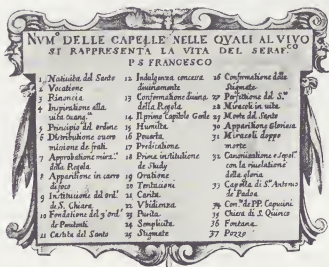 NVM.º DELLE CAPELLE NELLE QVALI AL VIVO
SI RAPPRESENTA LA VITA DEL SERAF.CO
P S FRANCESCO
1 Natiuita del Santo
2 Vocatione
3 Rinoncia
4 alla
vita
5 Principio del ordine
6 Distributione ouero
missione de frati.
7 Approbatione
della Regola
8 Apparitione in carro
di foco
9 Institutione del ord.
di S. Chiara
10 Fondatione del 3º ord.e
de Penitenti
11 Castita del Santo
12 Indulgenza concessa
diuinamente
13 Confirmatione diuina
della Regola
14 Il primo Capitolo Gnãle
15 Humilta
16 Pouerta
17 Predicatione
18 Prima institutione
de Studÿ
19 Oratione
20 Tentationi
21 Carita
22 Vbidienza
23 Purita
24 Semplicita
25 Stigmate
26 Confirmatione delle
Stigmate
27 Perfettione del S.to
28 Miracoli in vita
29 Morte del Santo
30 Apparitione Gloriosa
31 Miracoli doppo
morte
32 Canonizatione e
con la riuelatione
della gloria
33 Capella di S. Antonio
de Padoa
34 Con.to de PP. Capucini
35 Chiesa di S. Quirico
36 Fontana
37 Pozzo